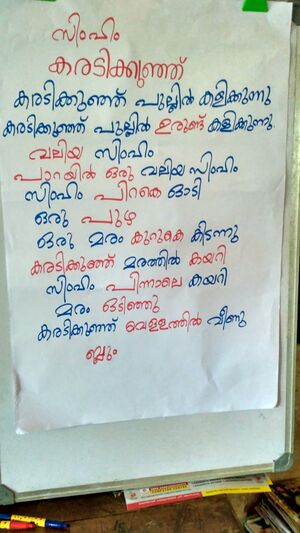 സിംഹം
കരടിക്കുഞ്ഞ്
കരടിക്കുഞ്ഞ് പുല്ലിൽ കളിക്കുന്നു
കരടിക്കുഞ്ഞ് പുല്ലിൽ ഉരുണ്ട് കളിക്കുന്നു.
വലിയ സിംഹം
പാറയിൽ ഒരു വലിയ സിംഹം
സിംഹം പിറകെ ഓടി
ഒരു പുഴ
ഒരു മരം കുറുകെ കിടന്നു
കരടിക്കുഞ്ഞ് മരത്തിൽ കയറി
സിംഹം പിന്നാലെ കയറി
മരം ഒടിഞ്ഞു
കരടിക്കുഞ്ഞ് വെള്ളത്തിൽ വീണു
ബ്ലും